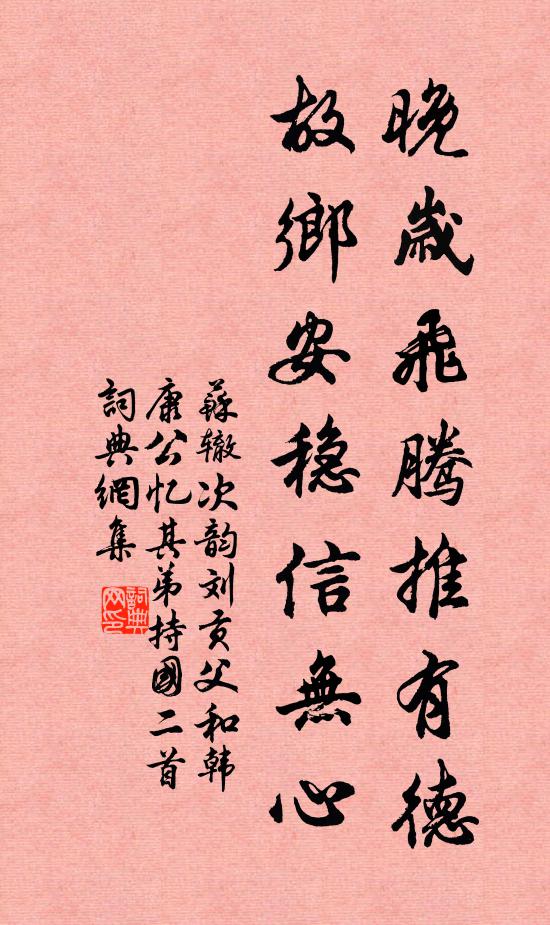 晚歲飛騰推有德
故鄉安穏信無心
蘇辙次韵刘贡父和韩
康公忆其弟持國二首
詞典網集
詞典网印